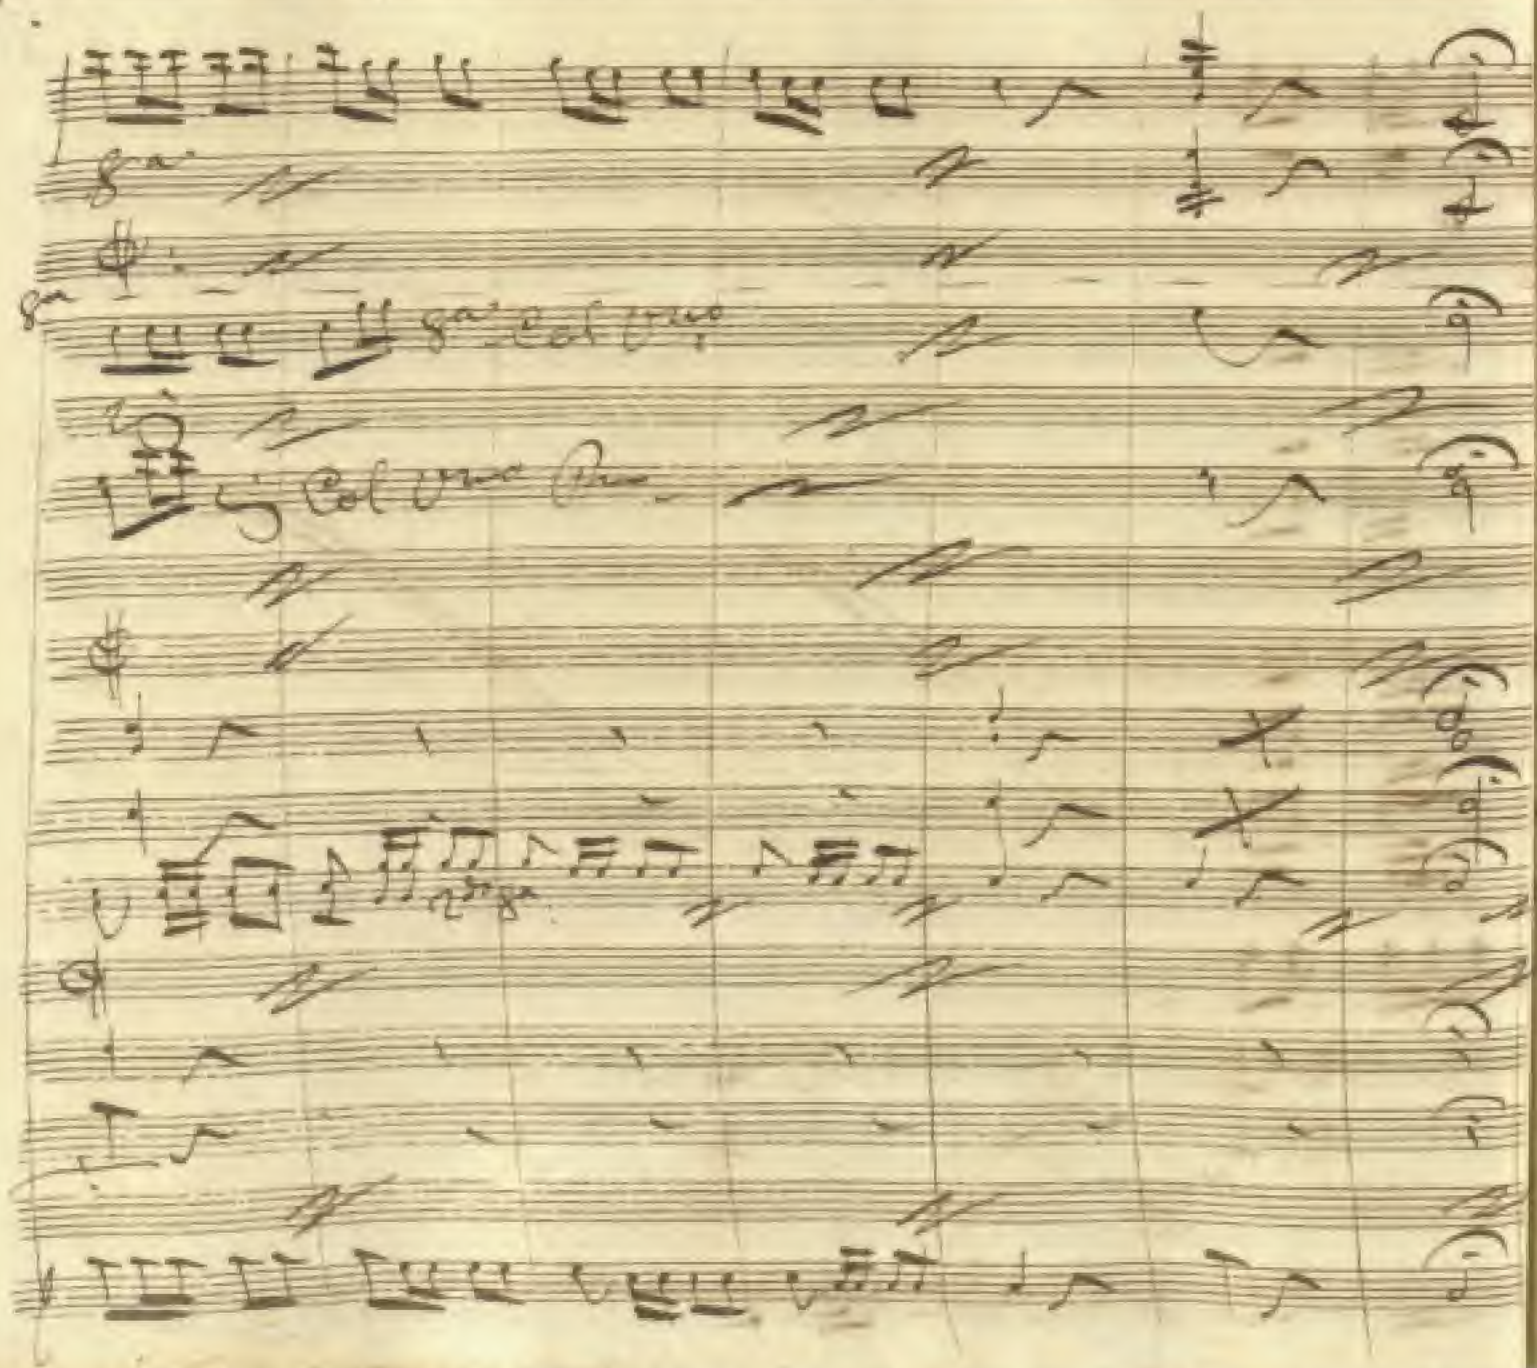 8va
8va
8va Col Vno
Col Vno Pmo
8va